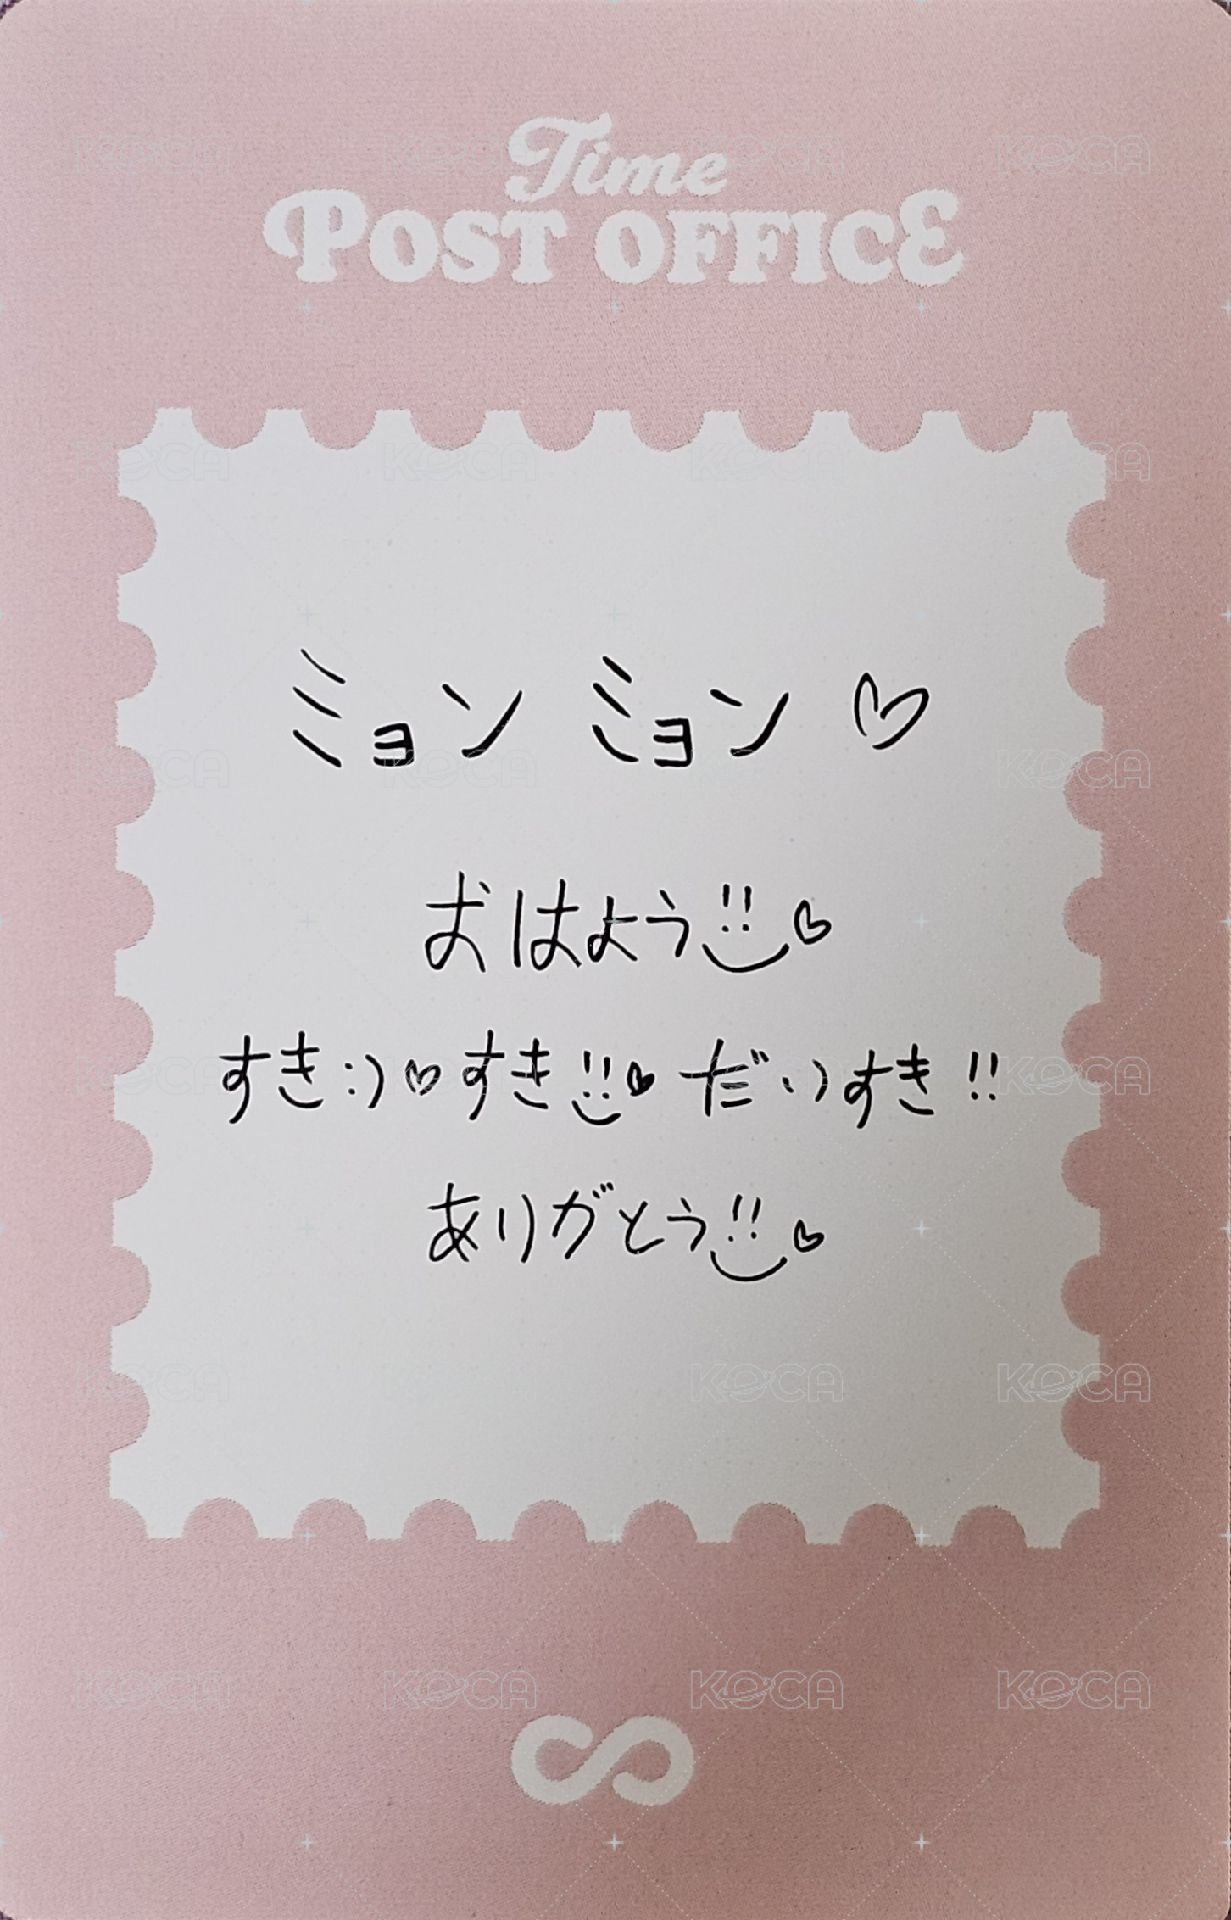 Time
POST OFFICE
ミョン ミョン ♡
おはよう!! ♡
すき:)♡すき!!♥ だいすき!!
ありがとう!! ♡
KOCA